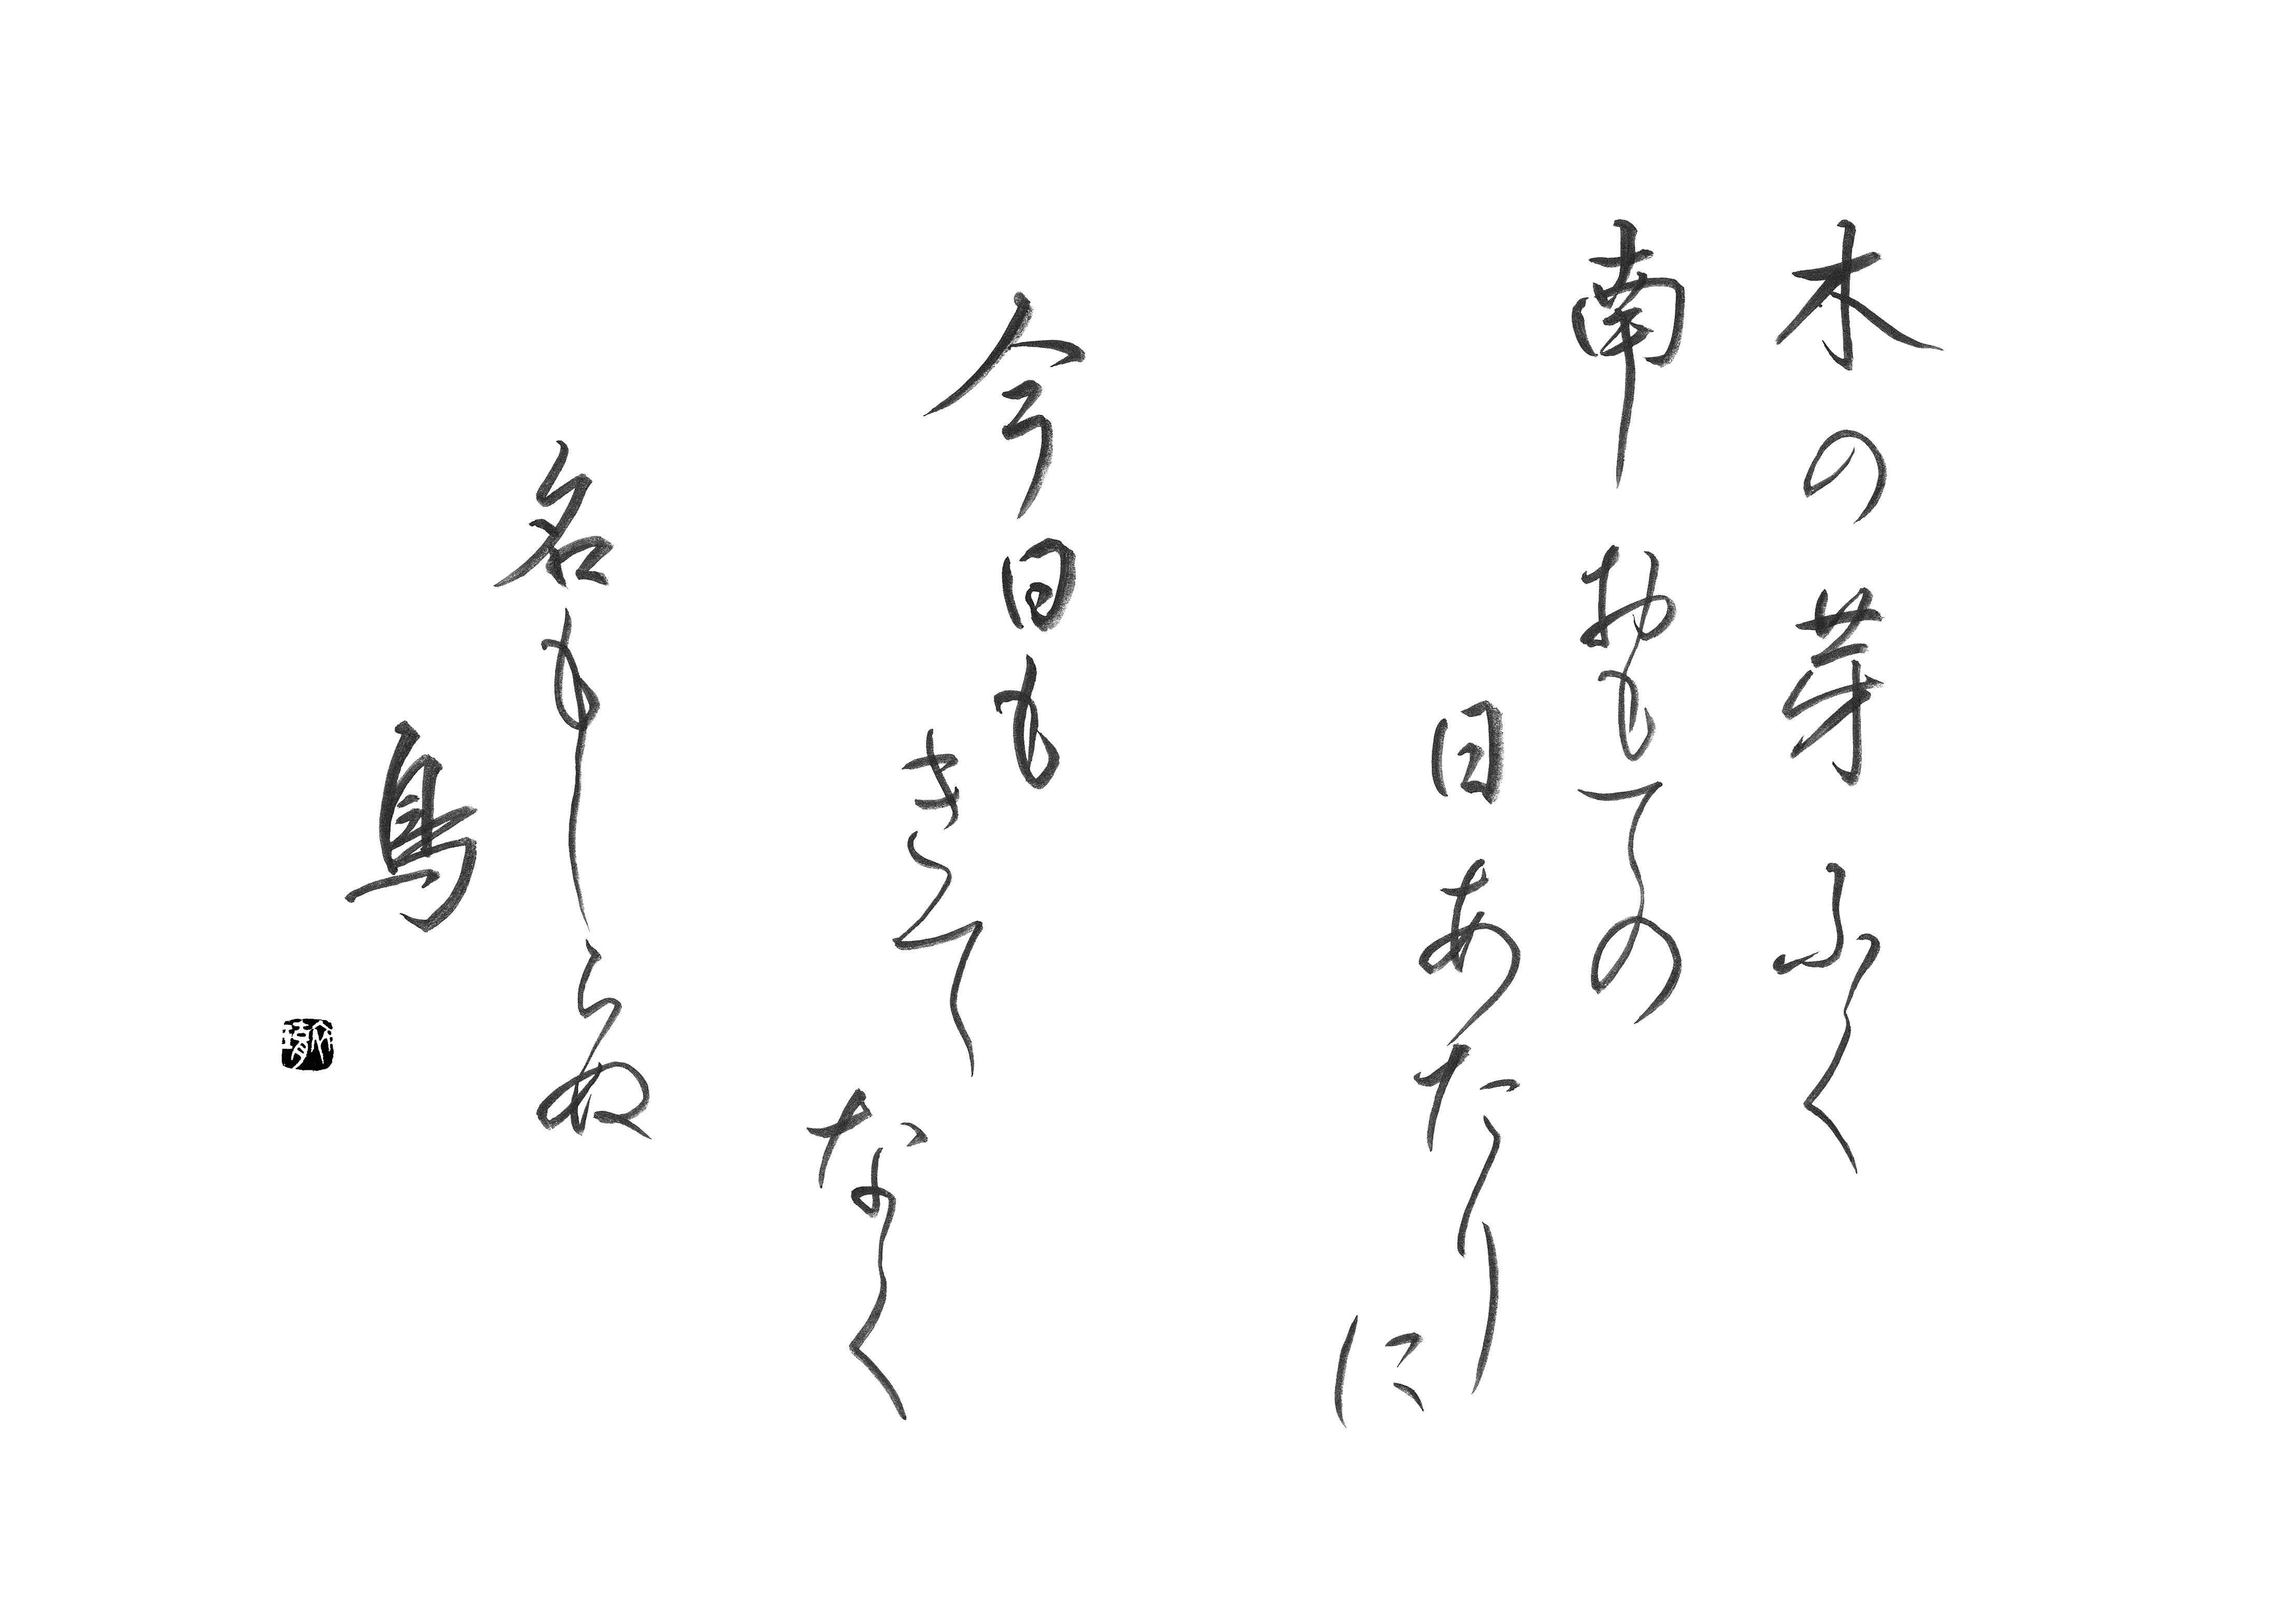 木の芽ふく
南おもての
日あたりに
今日も
きて
なく
名もしらぬ
鳥